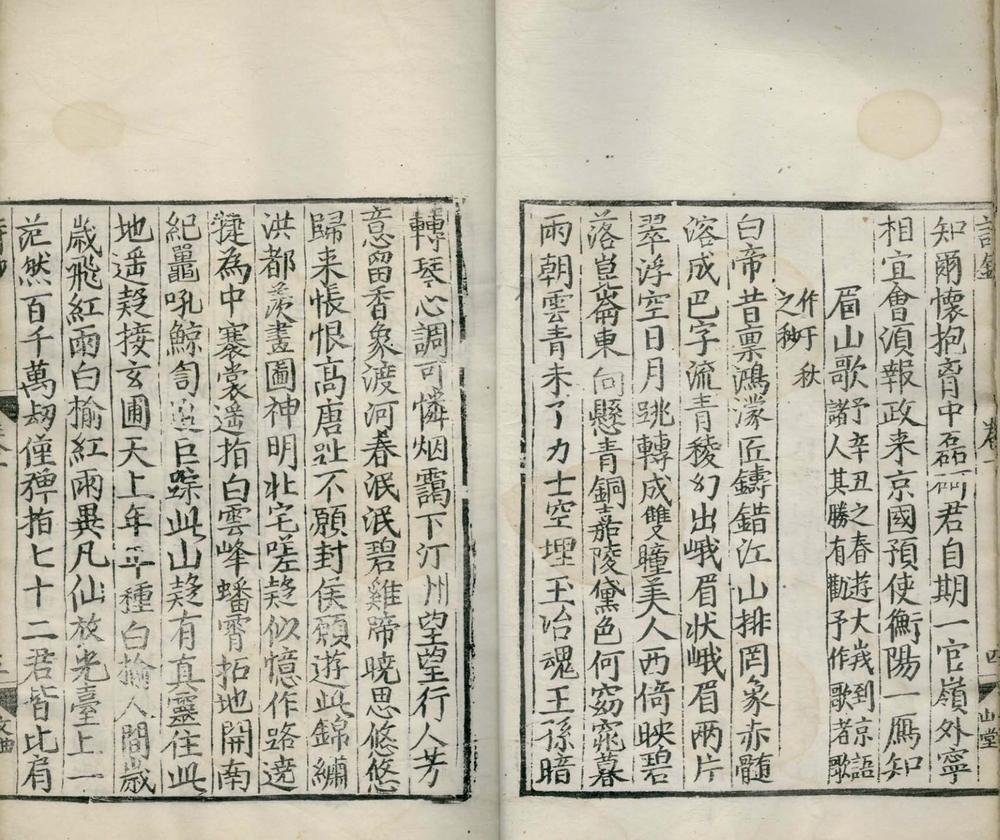 卷一
四
山堂
知爾懷抱胷中磊砢君自期一官嶺外寧
相宜會須報政来京國預使衡陽一鴈知
眉山歌 予辛丑之春遊大峩到京語
諸人其勝有勸予作歌者歌
作于秋
之秒
白帝昔稟鴻濛匠鑄錯江山排罔象赤髓
溶成巴字流青稜幻出峨眉状峨眉两片
翠浮空日月跳轉成雙瞳美人西倚映碧
落崑崙東向懸青銅嘉陵黛色何窈窕暮
雨朝雲青未了力士空埋玉冶魂王孫暗
轉琴心調可憐烟靄下汀州望望行人芳
意留香象渡河春泯泯碧雞蹄曉思悠悠
歸来悵恨高唐趾不願封侯願遊此錦繡
洪都羨畫圖神明壯宅嗟疑似憶作路遶
犍為中褰裳遥指白雲峰蟠霄拓地開南
紀鼉吼鯨訇巨蹤此山疑有真靈住此
地遥疑接玄圃天上年年種白榆人間歲
歲飛紅雨白榆紅雨異凡仙放光臺上一
茫然百千萬劫僅稗指七十二君皆比肩